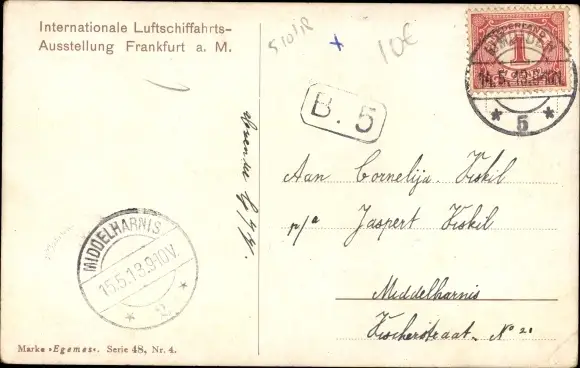 Internationale Luftschiffahrts-
Ausstellung Frankfurt a. M.
10€
NEDERLAND
1
5
B. 5
Aan Cornelija Kiskil
p/a Jaspert Kiskil
Middelharnis
N° 21
MIDDELHARNIS
15.5.13.9-10V.
2
Marke »Egemes«. Serie 48, Nr. 4.